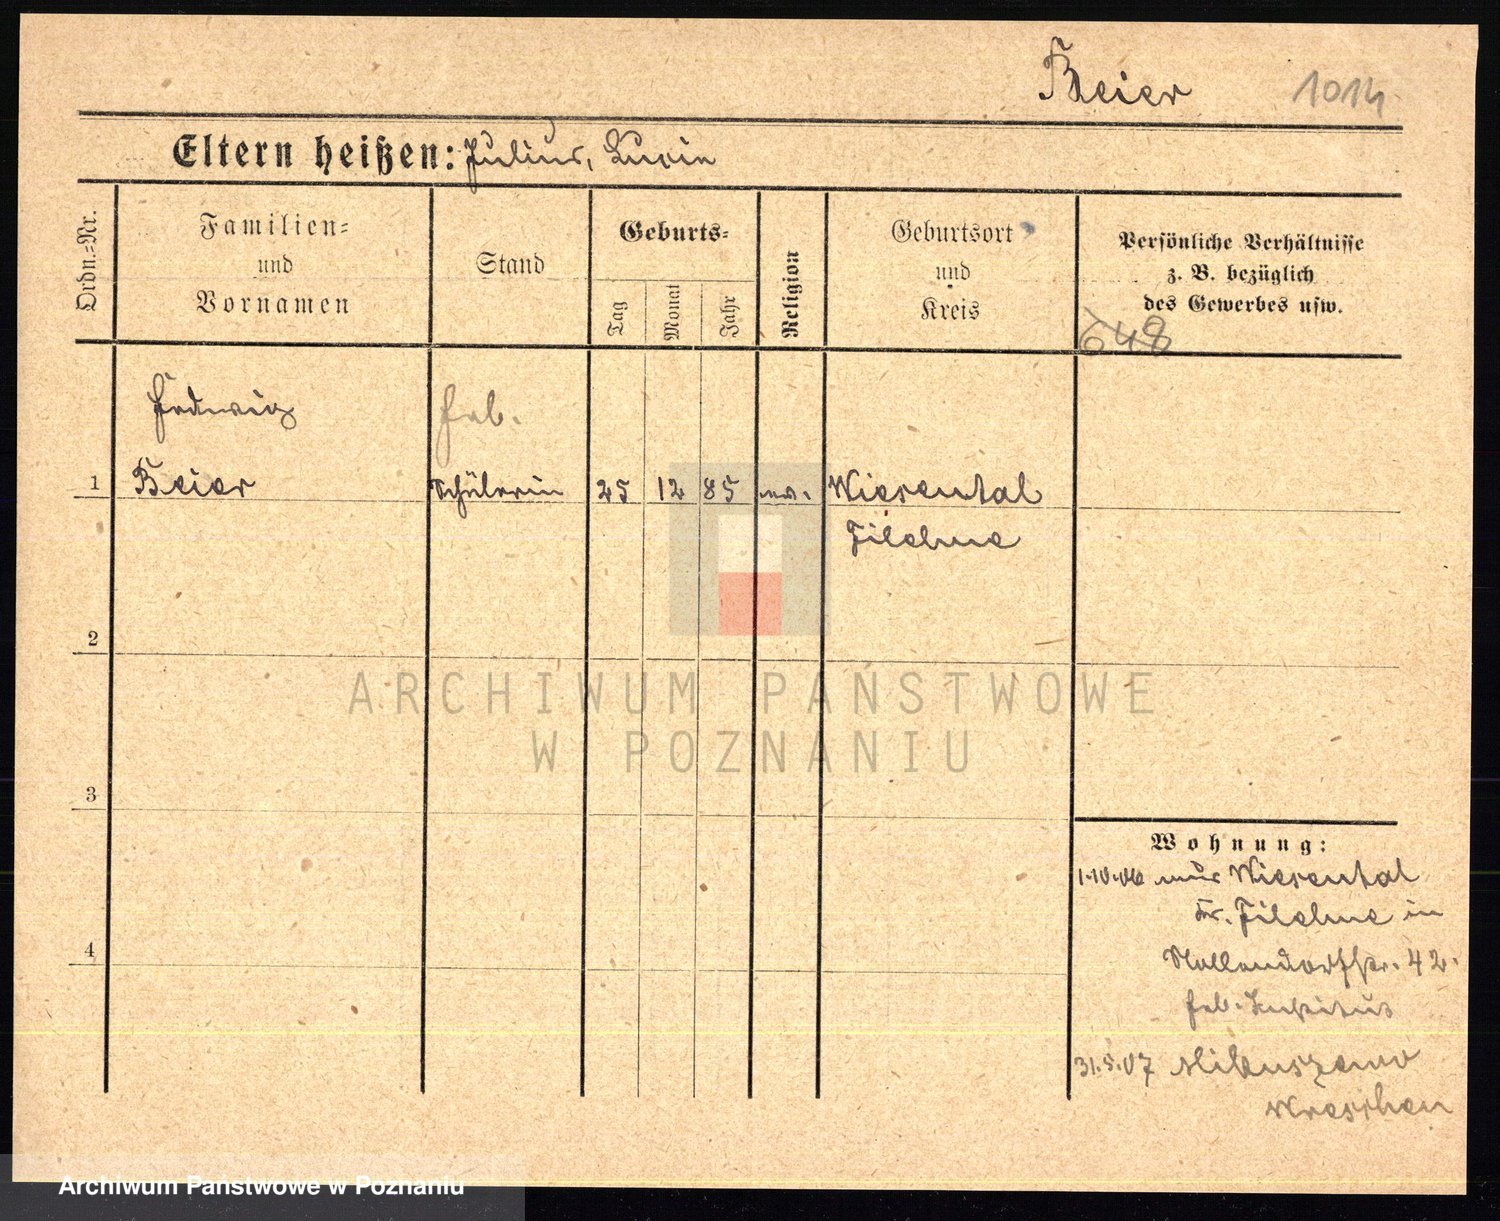 Beier 1014
Eltern heißen: Julius, Lucie
Ordn.-Nr.
Familien-
und
Vornamen
Stand
Geburts-
Tag
Monat
Jahr
Religion
Geburtsort
und
Kreis
Persönliche Verhältnisse
z. B. bezüglich
des Gewerbes usw.
648
Hedwig Heb.
1 Beier Schülerin 25 12 85 ev. Wiesental
Filehne
2
3
4
Wohnung:
1.10.06 aus Wiesental
Kr. Filehne in
Mollendorfstr. 42.
Heb. Institut
31.5.07 Mikuszewo
Wreschen
ARCHIWUM PAŃSTWOWE
W POZNANIU
Archiwum Państwowe w Poznaniu